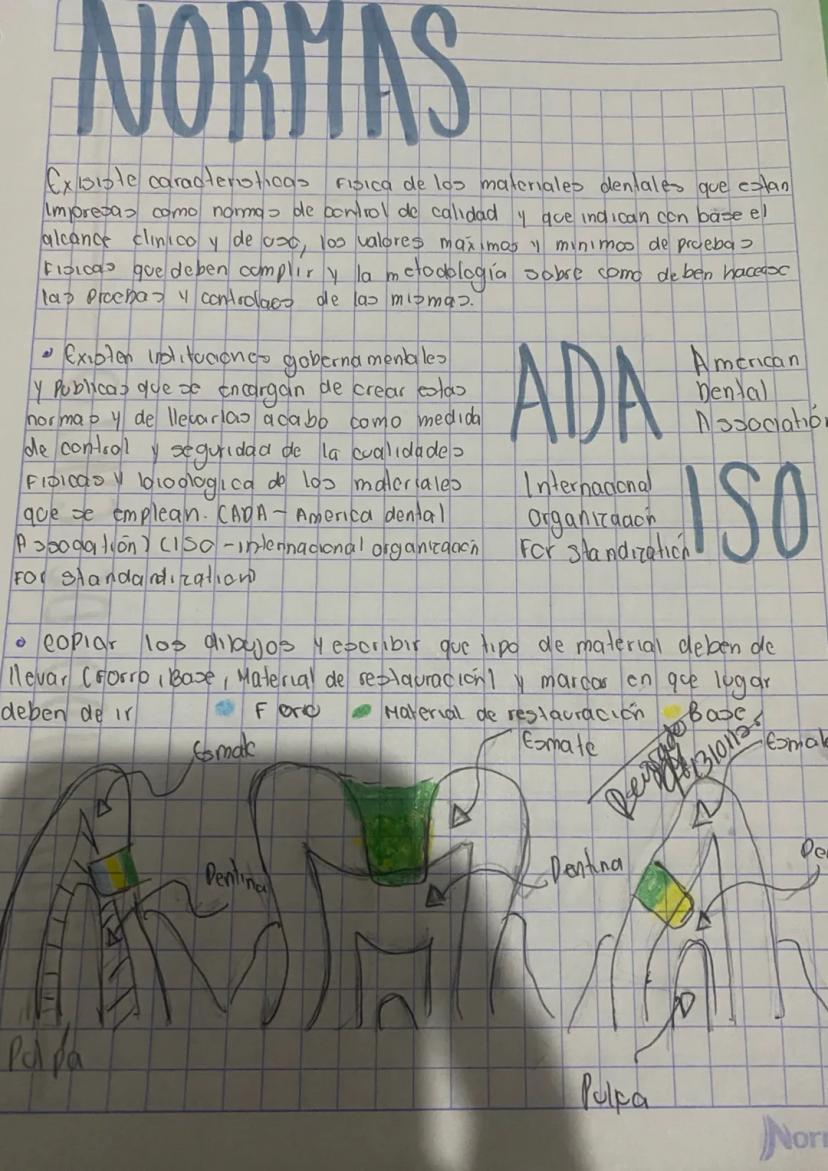 NORMAS
Exisiste caracteristicas Fisica de los materiales dentales que estan
impresas como normas de control de calidad y que indican con base el
alcance clinico y de uso, los valores maximos y minimos de pruebas
Fisicas que deben cumplir y la metodología sobre como deben hacerse
las pruebas y controlaes de las mismas.
• Existen instituciones gobernamentales
y Publicas que se encargan de crear estas
normas y de llevarlas acabo como medida
de control y seguridad de la cualidades
Fisicas y biodologica de los materiales
que se emplean. (ADA - America dental
Assogation) (ISO - internacional organización
For standardization)
ADA
American
Dental
Association
Internacional
organización
For standization
ISO
• copiar los dibujos y escribir que tipo de material deben de
llevar (Forro, Base, Material de restauración) y marcar en que lugar
deben de ir
Forro
Material de restauración
Base
Esmalte
Esmalte
Dentina
Dentina
Pulpa
Pulpa
Norm